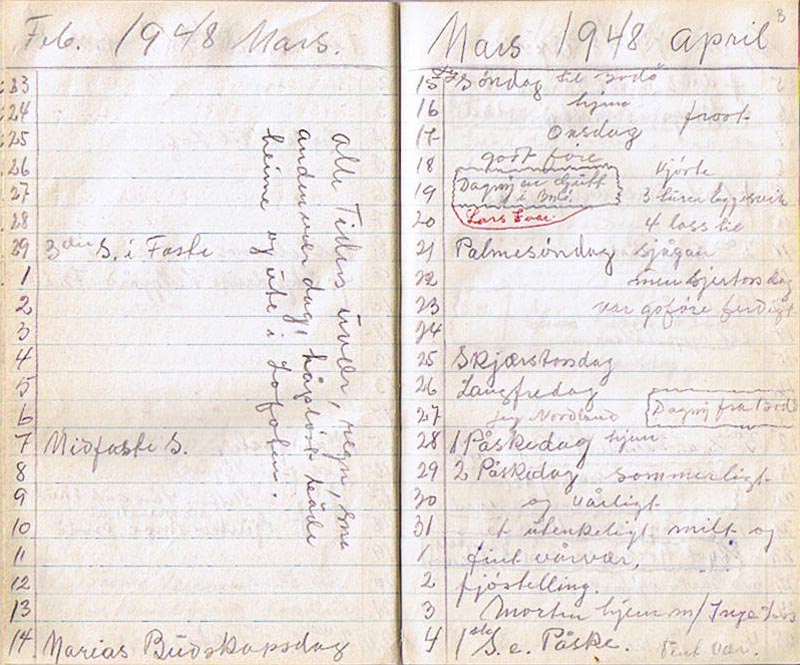 Feb. 1948 Mars.
23
24
25
26
27
28
29 3die S. i Faste
1
2
3
4
5
6
7 Midfaste S.
8
9
10
11
12
13
14. Marias Budskapsdag
alle Tiders uvær, regn, sno
anden vær dag, håpløst både
heime og ute i Lofoten.
3
Mars 1948 April
15 Søndag til Bodø
16 hjem
17 Onsdag frost
18 godt føre kjørte
19 Dagny
i Bodø 3 turer
20 Lars Ivar. 4 lass
21 Palmesøndag
22 men
23 var goføre ferdigt
24
25 Skjærstorsdag
26 Langfredag
27 Nordland Dagny fra Bodø
28 1 Påskedag hjem
29 2 Påskedag sommerligt
30 og vårligt
31 et utenkeligt milt og
1 fint vårvær,
2 fjøstelling.
3 Morten hjem m/ Inga
4 1ste S. e. Påske. Fint vær.